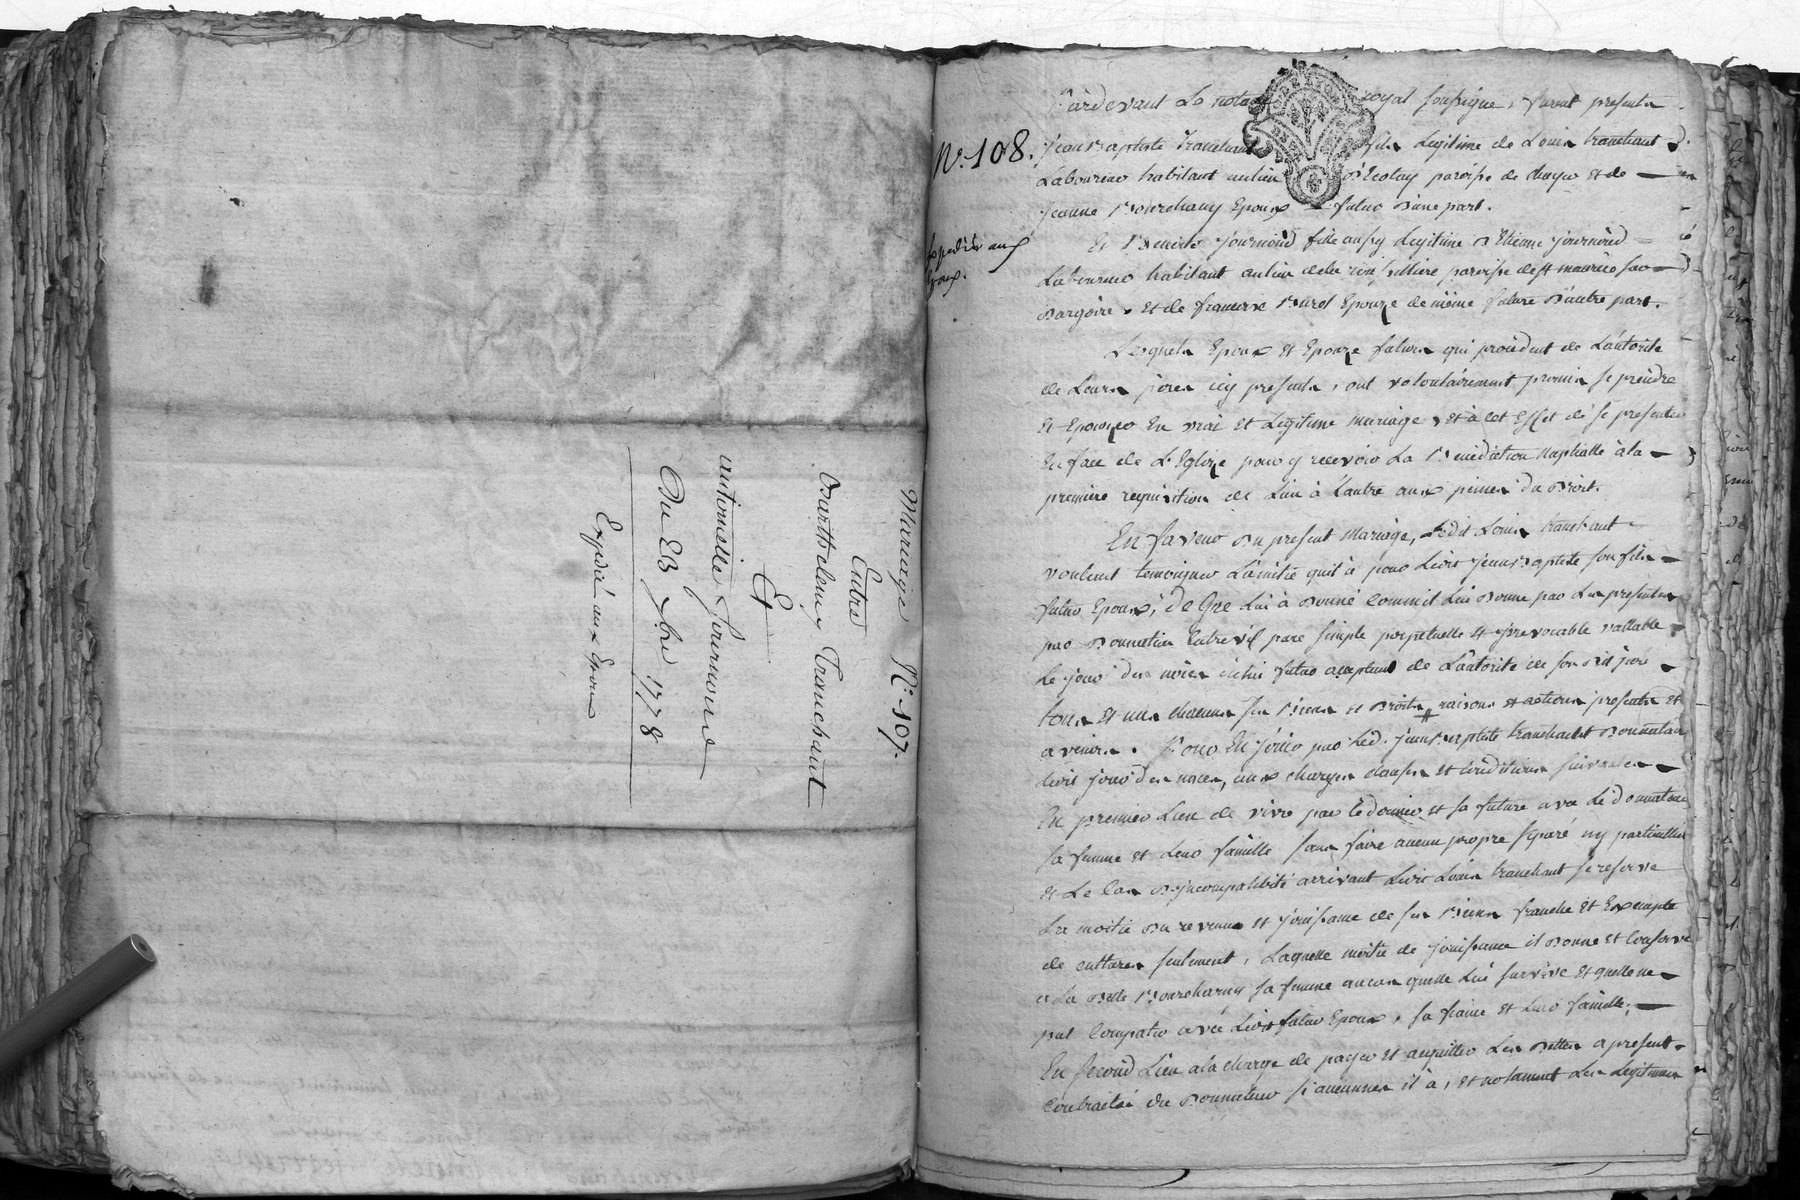 Mariage N.° 107.
Entre
Barthelemy Tranchant
Et
antoinette Journoud
Du 23 7bre 1778
Expedié aux Epoux
Pardevant Le notaire royal soussigné, furent presents
N.° 108.
Jean Baptiste Tranchant fils Legitime de Louis tranchant
Laboureur habitant au lieu paroisse de et de
Jeanne Bourchany Epoux futur D'une part.
Expedié aux
Epoux.
Et Benoite Journoud fille aussy Legitime D'Etienne Journoud
Laboureur habitant au lieu de la paroisse de st maurice sur
Dargoire, et de francoise Buret Epouze de même future D'autre part.
Lesquels Epoux et Epouze futurs qui procédent de L'autorité
de Leurs péres icy presents, ont volontairement promis se prendre
et Epouzer En vrai et Légitime mariage, et à cet Effet de se presenter
En face de L'Eglize pour y recevoir La Bénédiction Nuptialle à la
premiére requisition de L'un à L'autre aux peines du Droit.
En faveur Du présent Mariage, Ledit Louis tranchant
voulant temoigner L'amitié quil à pour Ledit Jean Baptiste son fils
futur Epoux, de Gré Lui à Donné Comme il Lui Donne par Les presentes
par Donnation Entrevif pure simple perpetuelle et yrrevocable vallable
Le jour des nôces icelui futur aceptant de L'autorité de son dit pére
tous et uns chacuns ses Biens et Droits, raisons et actions presents et
avenirs. Pour En Joüir par Led. Jean Baptiste tranchant Donnataire
Ledit jour des noces, aux charges clauses et conditions suivantes
En premier Lieu de vivre par Le dernier et sa future avec Le donnateur
sa femme et Leur famille sans faire aucun propre séparé ny particullier
et Le Cas D'yncompatibité arrivant Ledit Louis tranchant se reserve
La moitié Du revenu et jouissance de ses Biens franche et Exempte
de cultures seulement, Laquelle moitié de Jouissance il Donne et Conserve
a La Dette Bourchany sa femme aucas quelle Lui survive et quelle ne
put Compatir avec Ledit futur Epoux, sa fiancé et Leur famille;
En second Lieu a la charge de payer et acquitter Les Dettes a present
contractés du Donnateur si aucunnes il à, et notament Les Legitimes